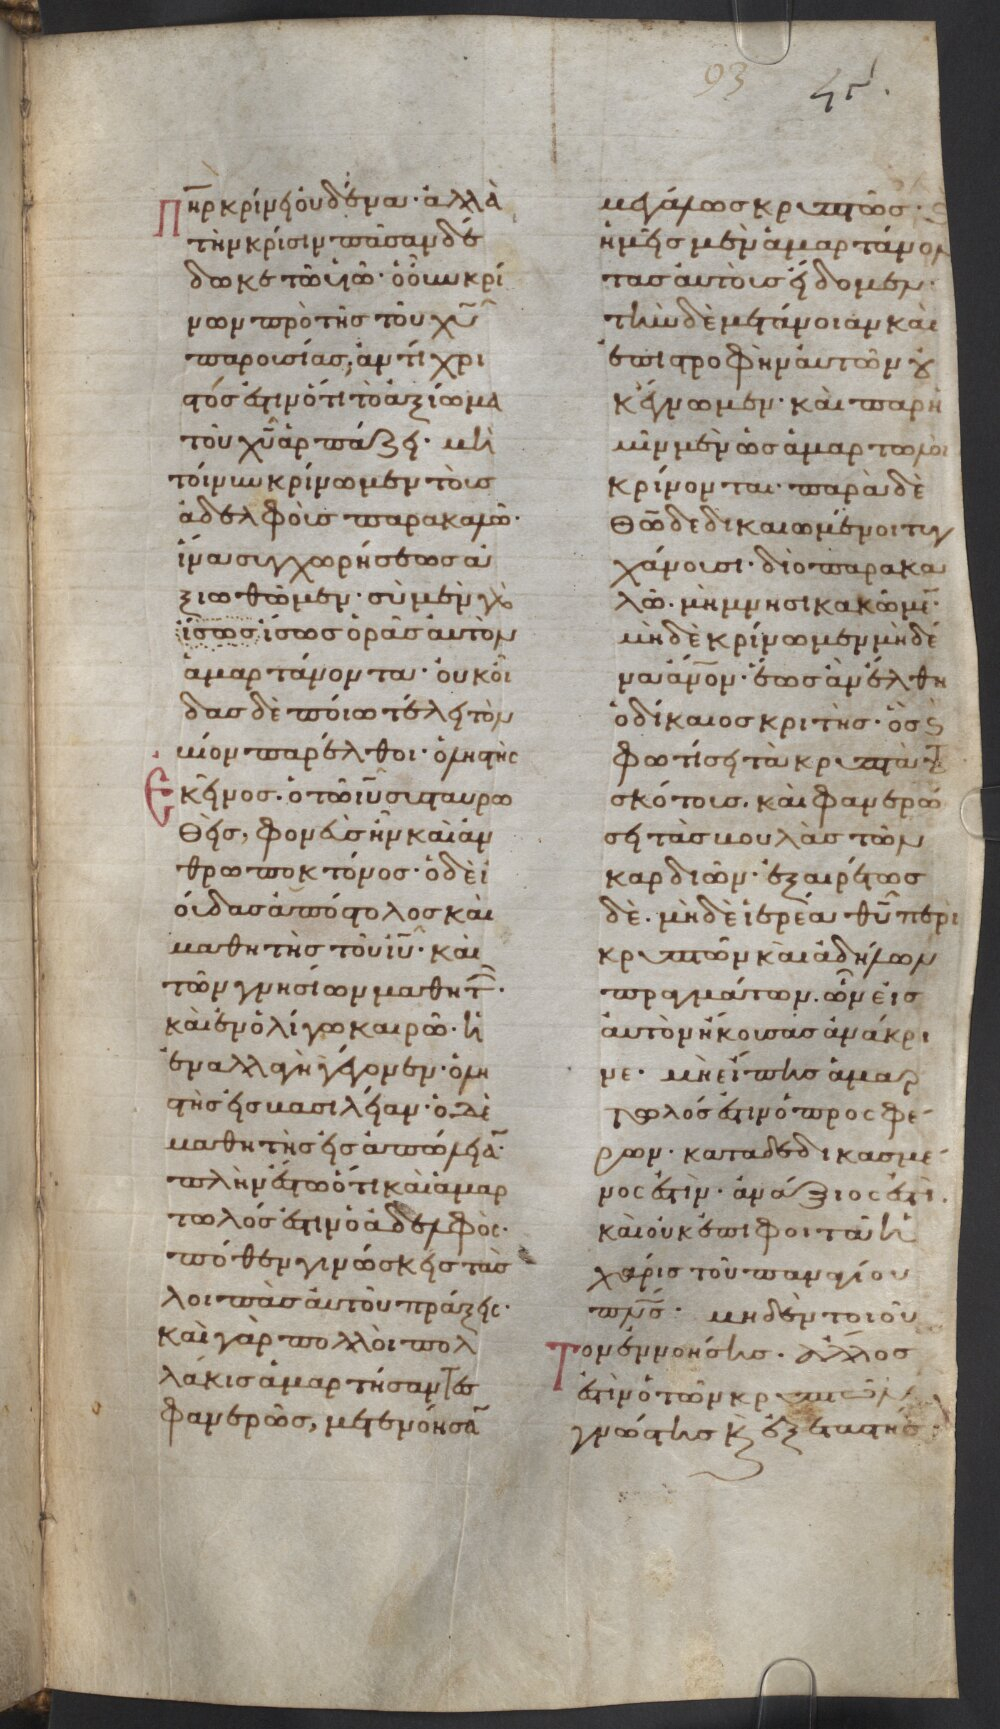 93 ϟϛʹ.
Πη̅ρ κρίνει οὐδένα· ἀλλὰ
τὴν κρίσιν πᾶσαν δέ
δωκε τῶ υἱῶ· ὁ οὖν κρί
νων πρὸ τῆς τοῦ χ̅υ̅
παρουσίας, ἀντίχρι
στός ἐστιν ὅτι τὸ ἀξίωμα
τοῦ χ̅υ̅ ἁρπάζει· μὴ
τοίνυν κρίνωμεν τοὺς
ἀδελφοὺς παρακαλῶ·
ἵνα συγχωρήσεως ἀ
ξιωθῶμεν· σὺ μὲν γὰρ
ἴσως ἴσως ὁρᾶς αὐτὸν
ἁμαρτάνοντα· οὐκ οἶ
δας δὲ ποίω τέλει τὸν
βίον παρέλθοι· ὁ ληστὴς
ἐκεῖνος· ὁ τῶ ι̅υ̅ συσταυρω
θεὶς, φονεὺς ἦν καὶ ἀν
θρωποκτόνος· ὁ δὲ ἰ
ούδας ἀπόστολος καὶ
μαθητὴς τοῦ ι̅υ̅· καὶ
τῶν γνησίων μαθητῶν·
καὶ ἐν ὀλίγω καιρῶ· ἡ
ἐναλλαγὴ γέγονεν· ὁ λη
στὴς εἰς βασιλείαν· ὁ δὲ
μαθητὴς εἰς ἀπώλειαν·
πλὴν ἔστω ὅτι καὶ ἁμαρ
τωλός ἐστιν ὁ ἀδελφὸς·
πόθεν γινώσκεις τὰς
λοιπὰς αὐτοῦ πράξεις·
καὶ γὰρ πολλοὶ πολ
λάκις ἁμαρτήσαντες
φανερῶς, μετενόησαν
μεγάλως κρυπτῶς·
ἡμεῖς μὲν ἁμαρτάνον
τας αὐτοὺς εἴδομεν·
τὴν δὲ μετάνοιαν καὶ
ἐπιστροφὴν αὐτῶν οὐ
κ ἔγνωμεν· καὶ παρ' ἡ
μῖν μὲν ὡς ἁμαρτωλοὶ
κρίνονται· παρὰ δὲ
Θῶ δεδικαιωμένοι τυγ
χάνουσι· διὸ παρακα
λῶ· μὴ μνησικακῶμεν·
μὴ δὲ κρίνωμεν μηδέ
να ἄν̅ο̅ν· ἕως ἂν ἔλθη
ὁ δίκαιος κριτὴς· ὃς καὶ
φωτίσει τὰ κρυπτὰ τοῦ
σκότους· καὶ φανερώ
σει τὰς βουλὰς τῶν
καρδιῶν· ἐξαιρέτως
δὲ· μὴ δὲ ἱερέα θ̅υ̅ περὶ
κρυπτῶν καὶ ἀδήλων
πραγμάτων· ὧν εἰς
αὐτὸν ἤκουσας ἀνάκρι
νε· μὴ εἴπης ἁμαρ
τωλός ἐστιν ὁ προσφέ
ρων· καταδεδικασμέ
νος ἐστὶν· ἀνάξιος ἐστὶ·
καὶ οὐκ ἐπιφοιτᾶ ἡ
χάρις τοῦ παναγίου
π̅ν̅ς̅· μηδὲν τοιοῦ
τον ἐννοήσης· ἄλλος
ἐστὶν ὁ τῶν κρυπτῶν
γνώστης κ(αὶ) ἐξεταστής·